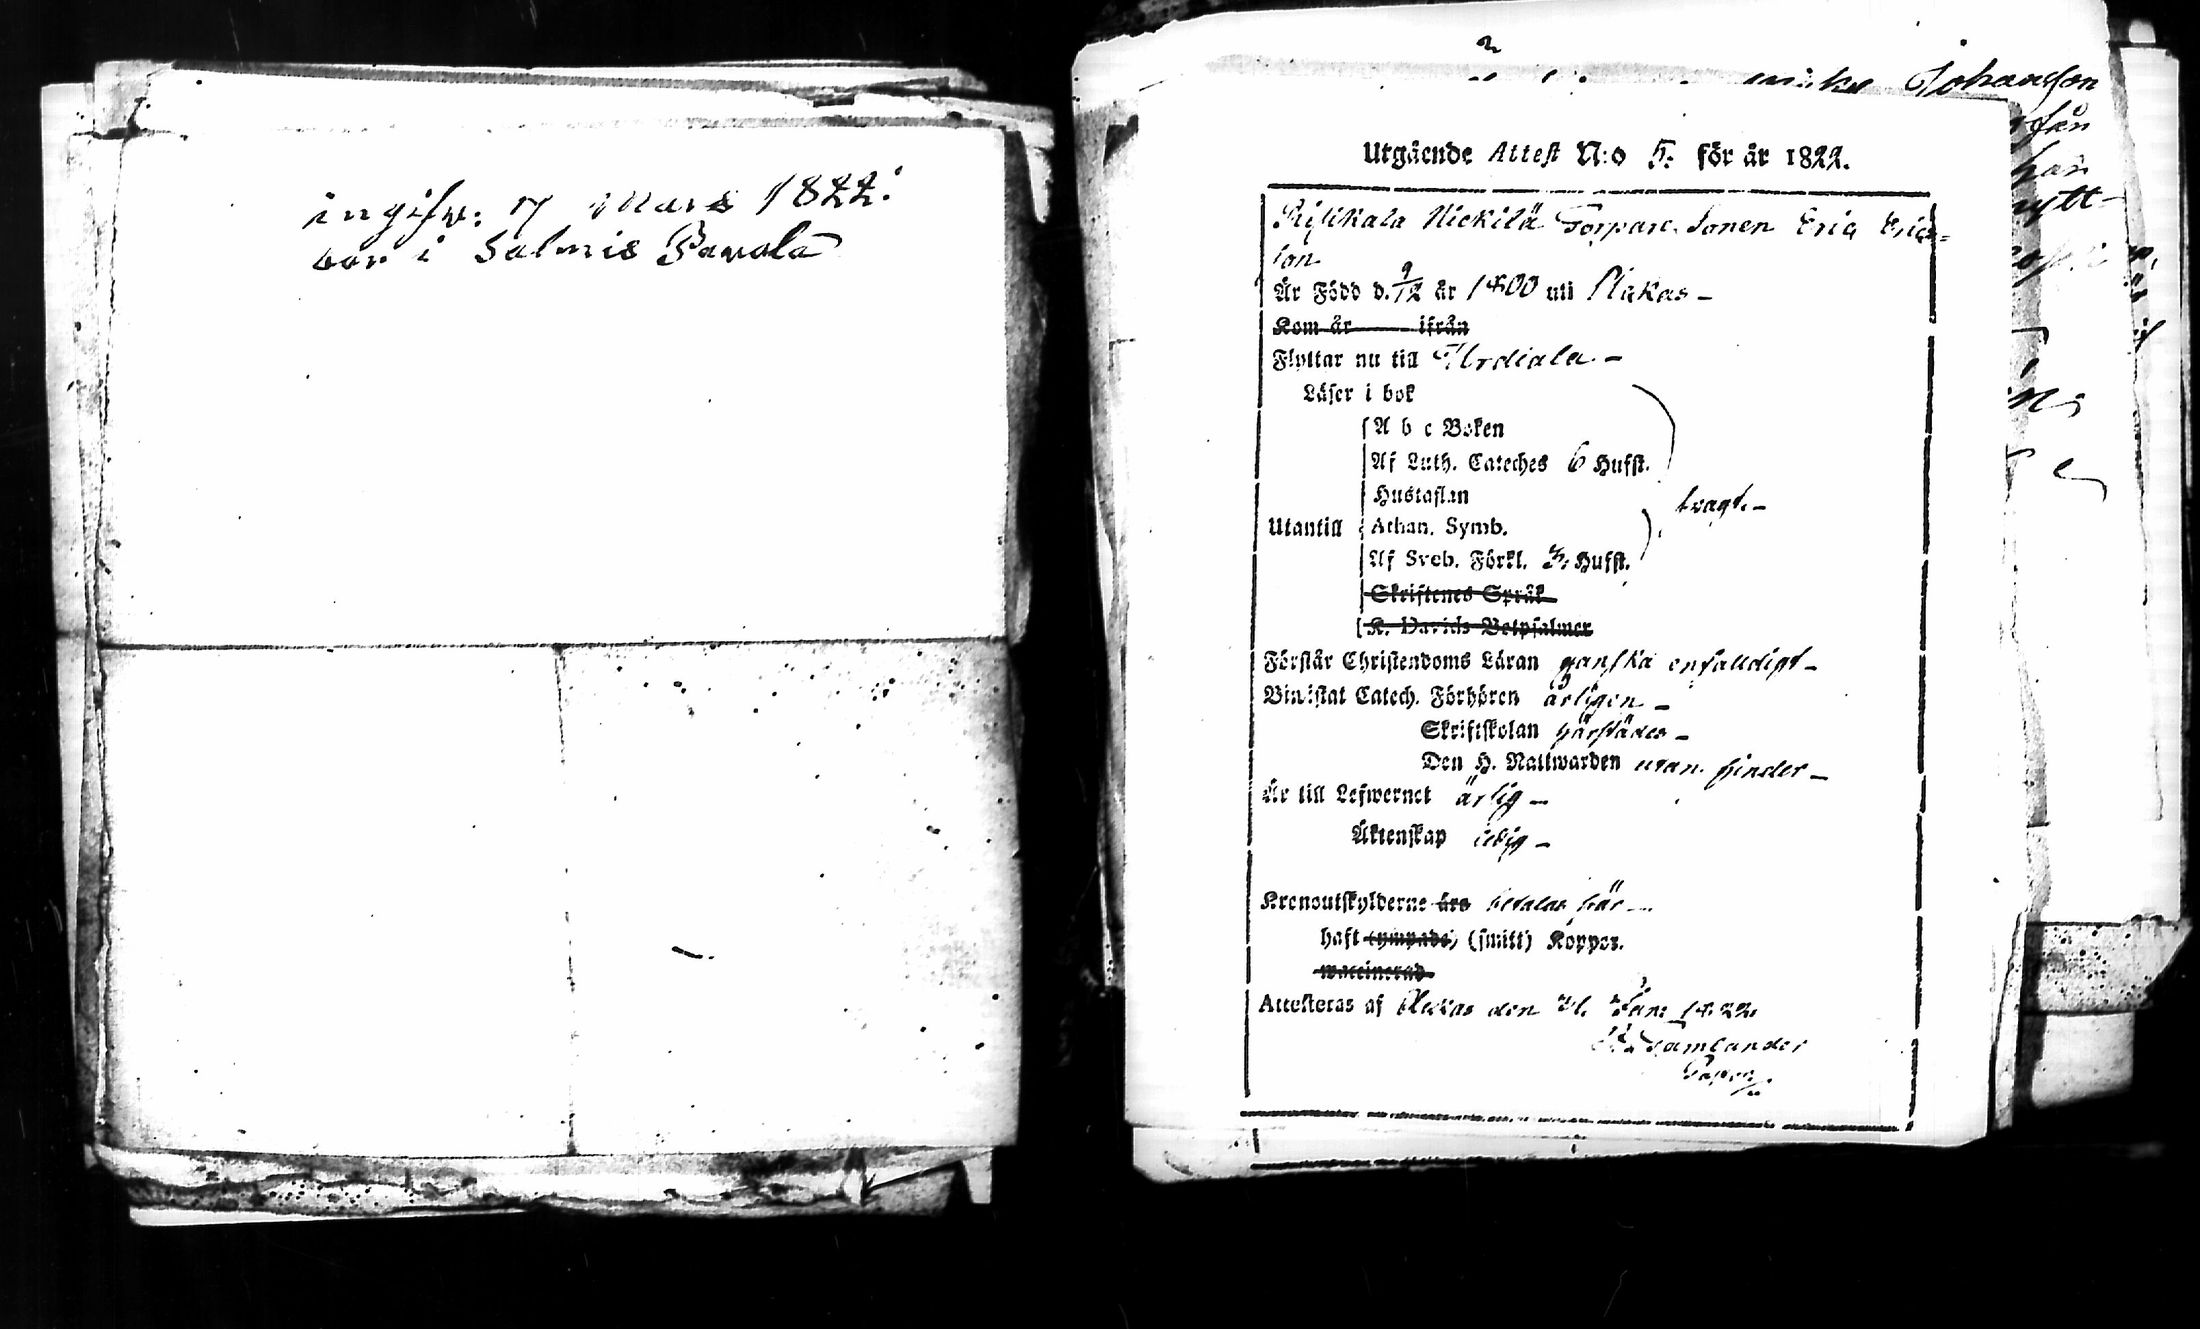 ingifw: 17 Mars 1822:
bor i Salmis Pawola
Johansson
Utgående Attest N:o 5. för år 1822.
Nickilä Torpare Sonen Eric Eric=
son
Är Född d. 9/12 år 1800 uti Akas –
Kom år ifrån
Flyttar nu till Urdiala –
Läser i bok
A b c Boken
Af Luth. Cateches 6 Hufst.
Hustaflan
svagt. –
Utantill Athan. Symb.
Af Sveb. Förkl. 3. Hufst.
Skriftenes Språk
K. Davids Botpsalmer
Förstår Christendoms Läran ganska enfalldigt –
Biwistat Catech. Förhören årligen –
Skriftskolan härstädes –
Den H. Nattwarden utan hinder –
Är till Lefwernet ärlig –
Äktenskap ledig –
Kronoutskylderne års betalas här –
haft (ympade) (smitt) Koppor.
waccinerad
Attesteras af Akas den Jan: 1822.